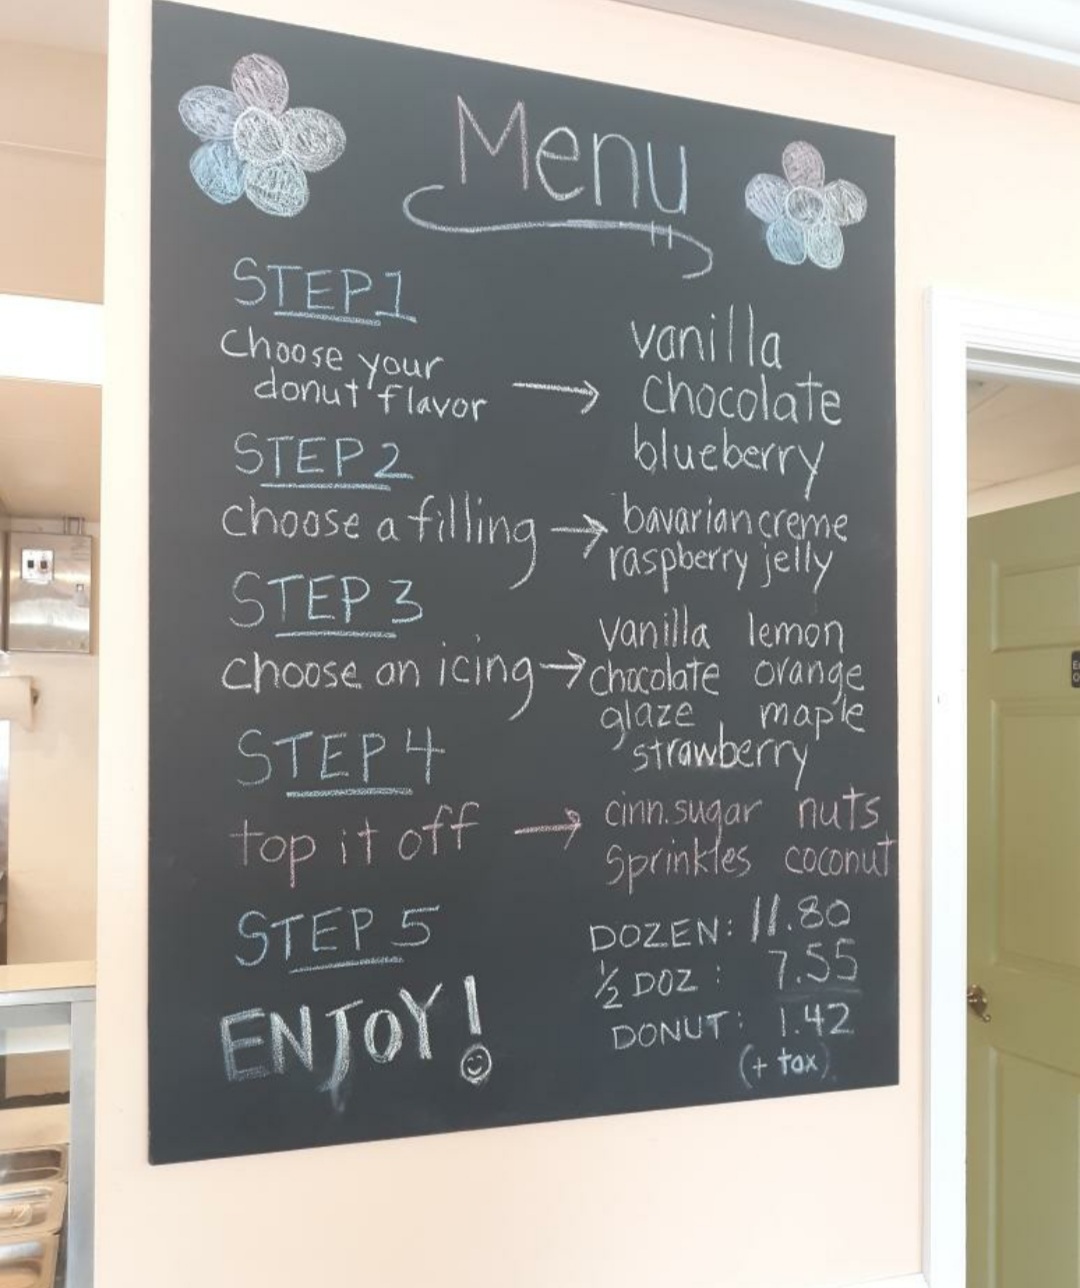 Menu
STEP 1
choose your
donut flavor → vanilla
chocolate
blueberry
STEP 2
choose a filling → bavarian creme
raspberry jelly
STEP 3
choose an icing → vanilla lemon
chocolate orange
glaze maple
strawberry
STEP 4
top it off → cinn. sugar nuts
sprinkles coconut
STEP 5
ENJOY!
DOZEN: 11.80
½ DOZ: 7.55
DONUT: 1.42
(+ tax)